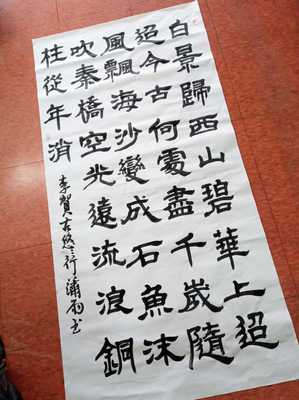 白景歸西山碧華上迢
迢今古何處盡千歲隨
風飄海沙變成石魚沫
吹秦橋空光遠流浪銅
柱從年消
李賀古悠〻行